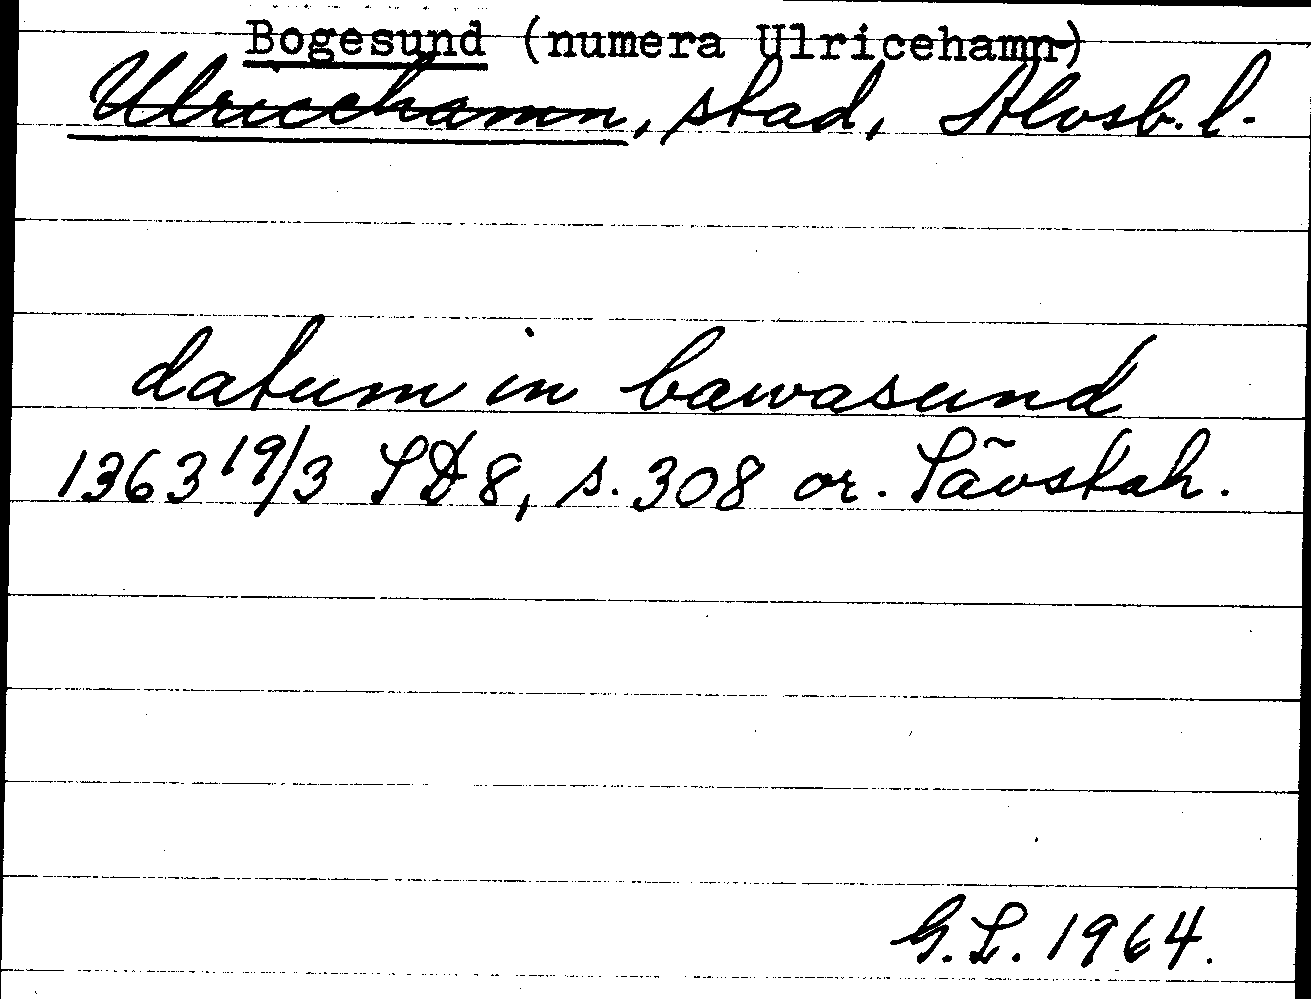 Bogesund (numera Ulricehamn)
Ulricehamn, stad, Älvsb. l.
datum in bawasund
1363 19/3 SD 8, s. 308 or. Sävstah.
G.L. 1964.